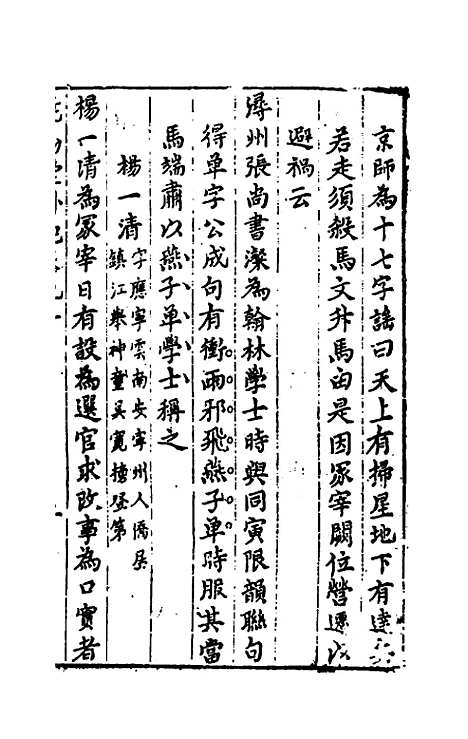 京師為十七字謠曰天上有掃星地下有達
若走須殺馬文升馬由是因冢宰闕位營遷以
避禍云
潯州張尚書澯為翰林學士時與同寅限韻聯句
得單字公成句有衝雨邪飛燕子單時服其當
馬端肅以燕子單學士稱之
楊一清字應寧雲南安寧州人僑居
鎮江舉神童吳寬榜登第
楊一清為冢宰日有設為選官求改事為口實者